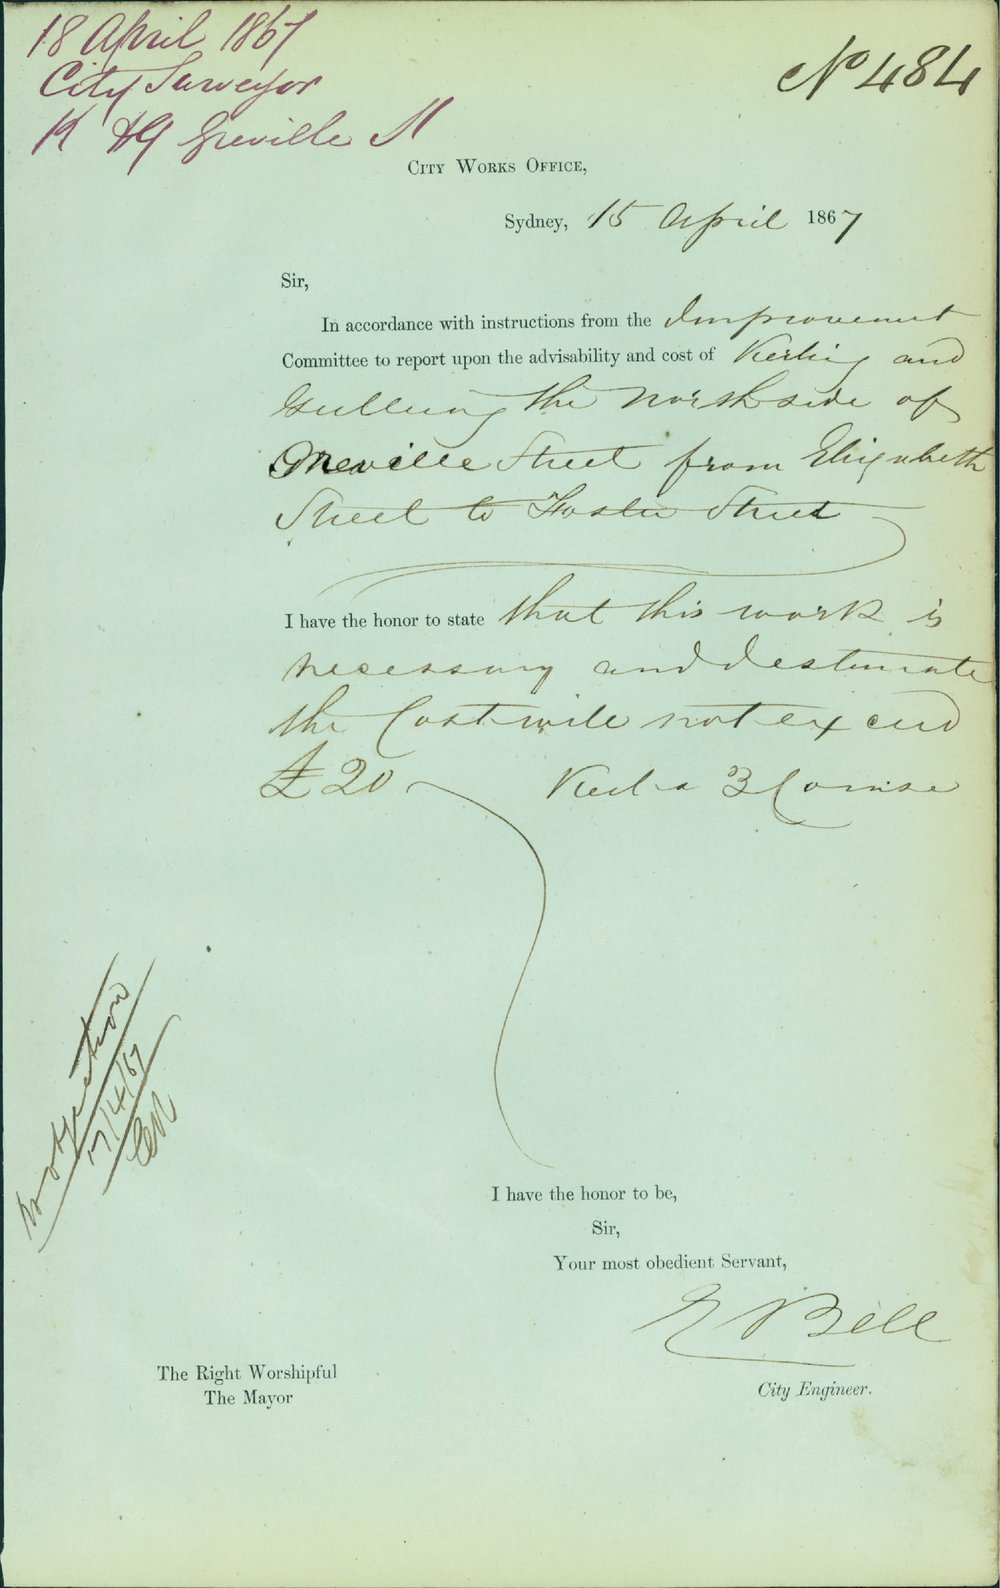 18 April 1867
City Surveyor
K & G Greville St
No 484
City Works Office,
Sydney, 15 April 1867
Sir,
In accordance with instructions from the Improvement
Committee to report upon the advisability and cost of Kerbing and
Gullering the North side of
Greville Street from Elizabeth
Street to Foster Street
I have the honor to state that this work is
necessary and I estimate
the Cost will not exceed
£20
No objection
17/4/67
I have the honor to be,
Sir,
Your most obedient Servant,
E Bell
City Engineer.
The Right Worshipful
The Mayor